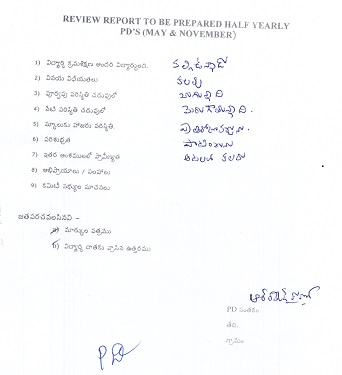 REVIEW REPORT TO BE PREPARED HALF YEARLY
PD'S (MAY & NOVEMBER)
1) విద్యార్థి క్రమశిక్షణ అందరి విద్యార్థులది.
2) వినయ విధేయతలు కలవు
3) పూర్వపు పరిస్థితి చదువులో బాగున్నది
4) నేటి పరిస్థితి చదువులో
5) స్కూలుకు హాజరు పరిస్థితి.
6) పరిశుభ్రత
7) ఇతర అంశములలో ప్రావీణ్యత ఆటలలో కలదు
8) అభిప్రాయాలు / సలహాలు
9) కమిటీ సభ్యుల సూచనలు
జతపరచవలసినవి -
a) మార్కుల పత్రము
b) విద్యార్థి దాతకు వ్రాసిన ఉత్తరము
PD సంతకం
తేది.
గ్రామం
PD